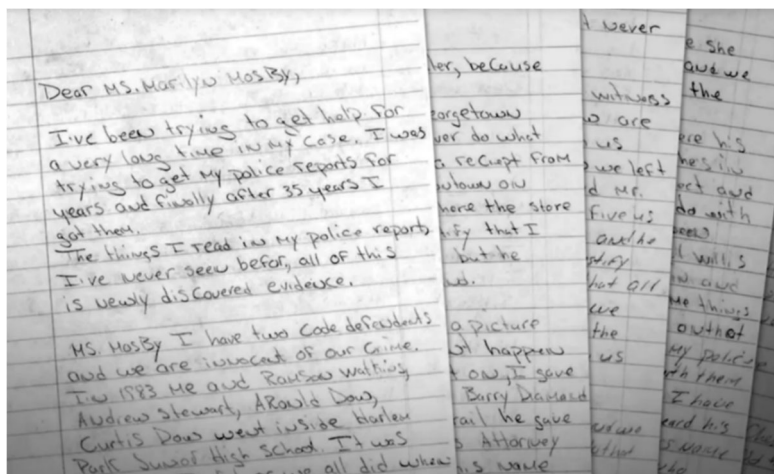 Dear MS. Marilyn Mosby,
I've been trying to get help for
a very long time in my case. I was
trying to get my police reports for
years and finally after 35 years I
got them.
The things I read in my police report,
I've never seen befor, all of this
is newly discovered evidence.
MS. MosBy I have two Codefendents
and we are innocent of our Crime.
In 1983 me and Ransom Watkins,
Andrew Stewart, ARould Dow,
Curtis Dows went inside harlem
Park Junor High school. It was
all did when
ler, because
orgetown
ver do what
a recipt from
utown on
here the store
tify that I
but he
nd.
a picture
happen
on, I gave
Barry Diamond
rail he gave
s Attorney
his name
t Never
witness
are
us
we left
d Mr.
Five us
and he
stify
hat all
we
the
us
e she
and we
the
ere his
hes in
ect and
do with
been
l willis
me things
on that
My police
th them
I have
eard his
s name